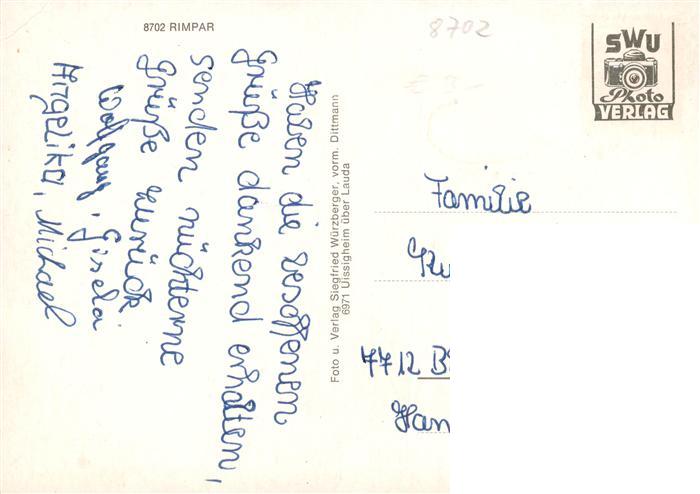 8702 RIMPAR
8702
Haben die besoffenen
Grüße dankend erhalten,
senden nüchterne
Grüße zurück
Wolfgang, Gisela
Angelika, Michael
Foto u. Verlag Siegfried Würzberger, vorm. Dittmann
6971 Uissigheim über Lauda
SWU
Photo
VERLAG
Familie
7712 B
Ham